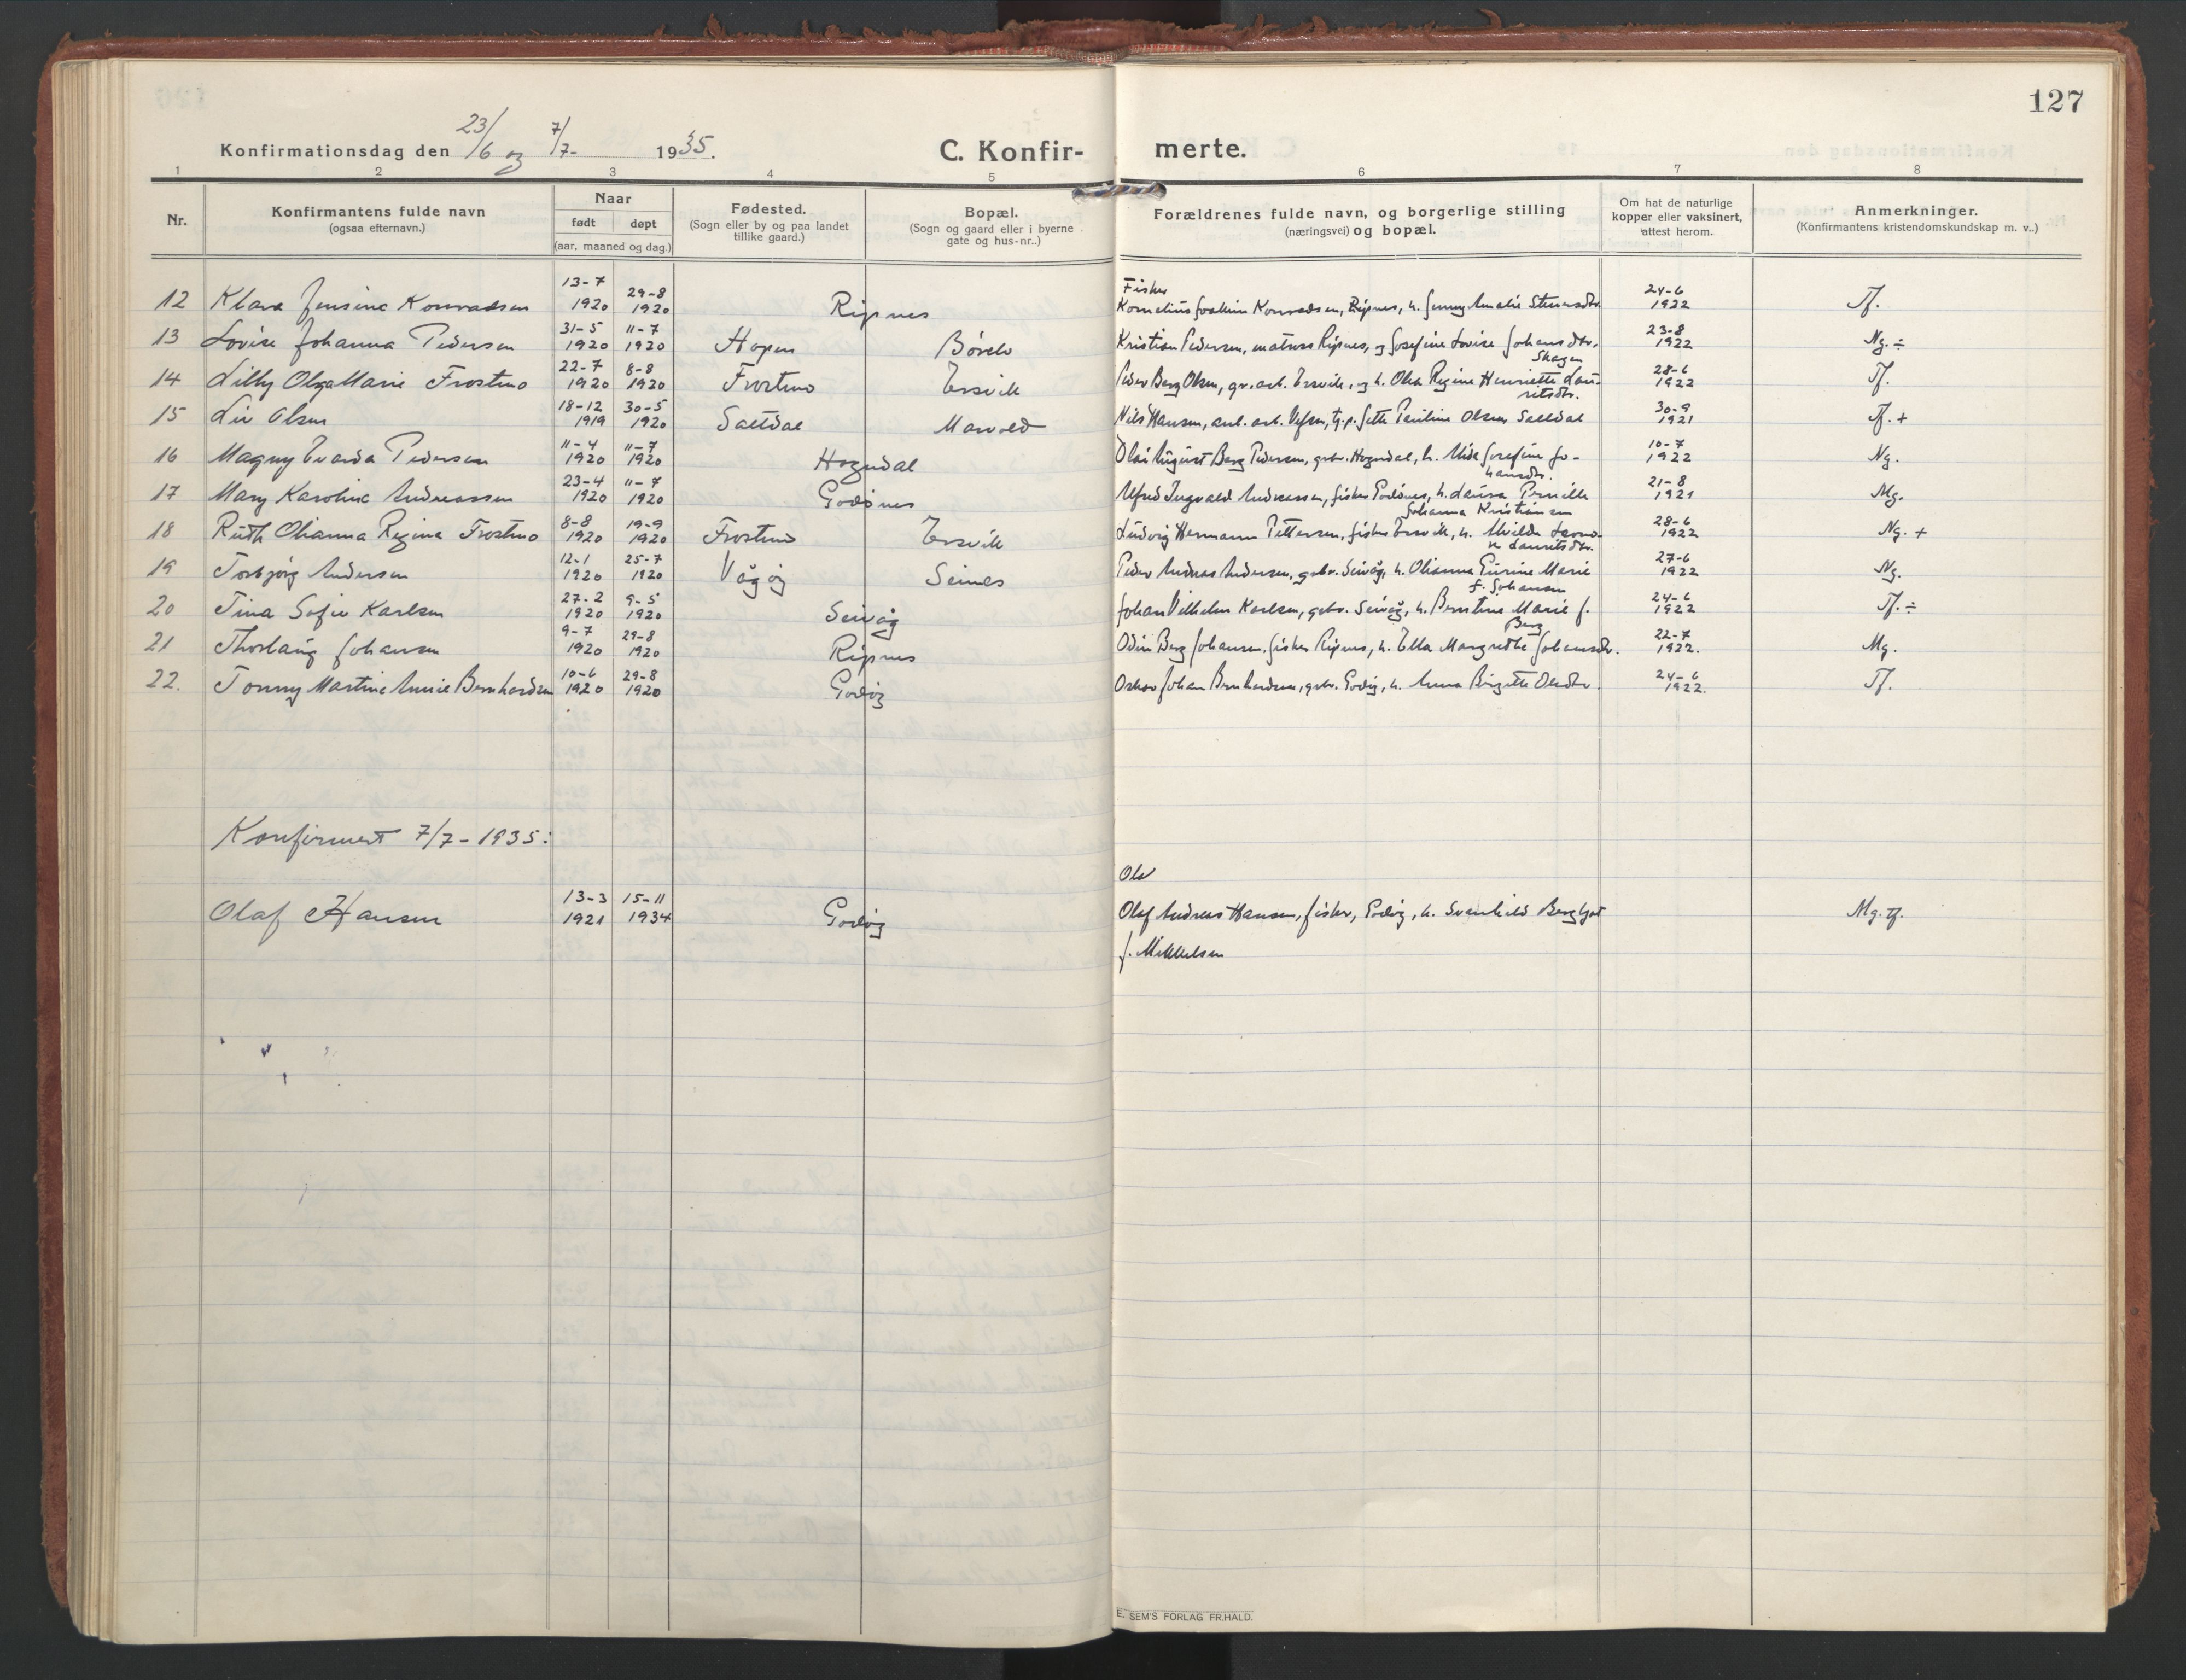 127
Konfirmationsdag den 23/6 og 7/7- 1935.
C. Konfir- merte.
1 2 3 4 5 6 7 8
Nr.
Konfirmantens fulde navn
(ogsaa efternavn.)
Naar
født døpt
(aar, maaned og dag.)
Fødested.
(Sogn eller by og paa landet
tillike gaard.)
Bopæl.
(Sogn og gaard eller i byerne
gate og hus-nr..)
Forældrenes fulde navn, og borgerlige stilling
(næringsvei) og bopæl.
Om hat de naturlige
kopper eller vaksinert,
attest herom.
Anmerkninger.
(Konfirmantens kristendomskundskap m. v..)
12 Klara Jensine Konradsen 13-7 1920 29-8 1920 Ripnes Fisker
Kornelius Joakim Konradsen, Ripnes, h. Jenny Amalie 24-6 1922 Tf.
13 Lovise Johanna Pedersen 31-5 1920 11-7 1920 Hopen Kristian Pedersen, matros Ripnes, og Josefine Lovise Johansdtr. 23-8 1922 Ng. ÷
Skagen
14 Lilly Olga Marie Frostmo 22-7 1920 8-8 1920 Frostmo Ersvik Peder Berg Olsen, gr.arb. Ersvik, og h. Olea Regine Henriette Lau-
ritsdtr. 28-6 1922 Tf.
15 Liv Olsen 18-12 1919 30-5 1920 Saltdal Marvold Nils Hansen, anl. arb. Vefsn, Pauline Olsen Saltdal 30-9 1921 Tf. +
16 Magny Evarda Pedersen 11-4 1920 11-7 1920 Hogndal Olai August Berg Pedersen, grbr. Hogndal, h. Alida Josefine Jo-
hansdr. 10-7 1922 Ng.
17 Mary Karoline Andreassen 23-4 1920 11-7 1920 Godønes Alfred Ingvald Andreassen, fisker Godønes, h. Laura Pernille
Johanna Kristiansen 21-8 1921 Mg.
18 Ruth Olianna Regina Frostmo 8-8 1920 19-9 1920 Frostmo Ersvik Ludvig Hermann Pettersen, fisker Ersvik, h. Alvilda
Lauritsdtr. 28-6 1922 Ng. +
19 Torbjørg Andersen 12-1 1920 25-7 1920 Vågøy Seines Peder Andreas Andersen, grbr. Seivåg, h. Olianna Gurine Marie
f. Johansen 27-6 1922 Ng.
20 Tina Sofie Karlsen 27-2 1920 9-5 1920 Seivåg Johan Vilhelm Karlsen, grbr. Seivåg, h. Berntine Marie f.
Berg 24-6 1922 Tf. ÷
21 Thorlaug Johansen 9-7 1920 29-8 1920 Ripnes Odin Berg Johansen, fisker Ripnes, h. Ella Margrethe Johansdtr. 22-7 1922. Mg.
22. Tonny Martine Annie Bernhardsen 10-6 1920 29-8 1920 Godøy Oskar Johan Bernhardsen, grbr. Godøy, h. Anna Birgitte Olsdtr. 24-6 1922. Tf.
Konfirmert 7/7-1935:
Olaf Hansen 13-3 1921 15-11 1934 Godøy
Olaf Andreas Hansen, fisker, Godøy, h. Svanhild Bergljot
f. Mikkelsen
Mg. tf.
E. SEM'S FORLAG FR.HALD.